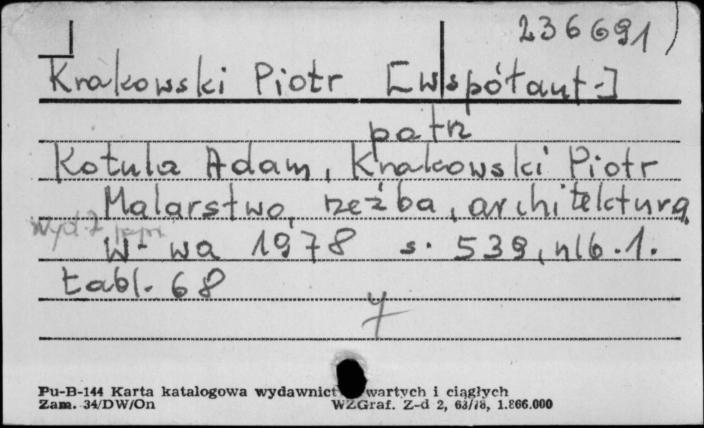 236691
Krakowski Piotr [współaut.]
patrz
Kotula Adam, Krakowski Piotr
Malarstwo, rzeźba, architektura
wyd. 2
W-wa 1978 s. 539, nlb. 1.
tabl. 68
Pu-B-144 Karta katalogowa wydawnict wartych i ciągłych
Zam. 34/DW/On WZGraf. Z-d 2, 63/78, 1.866.000